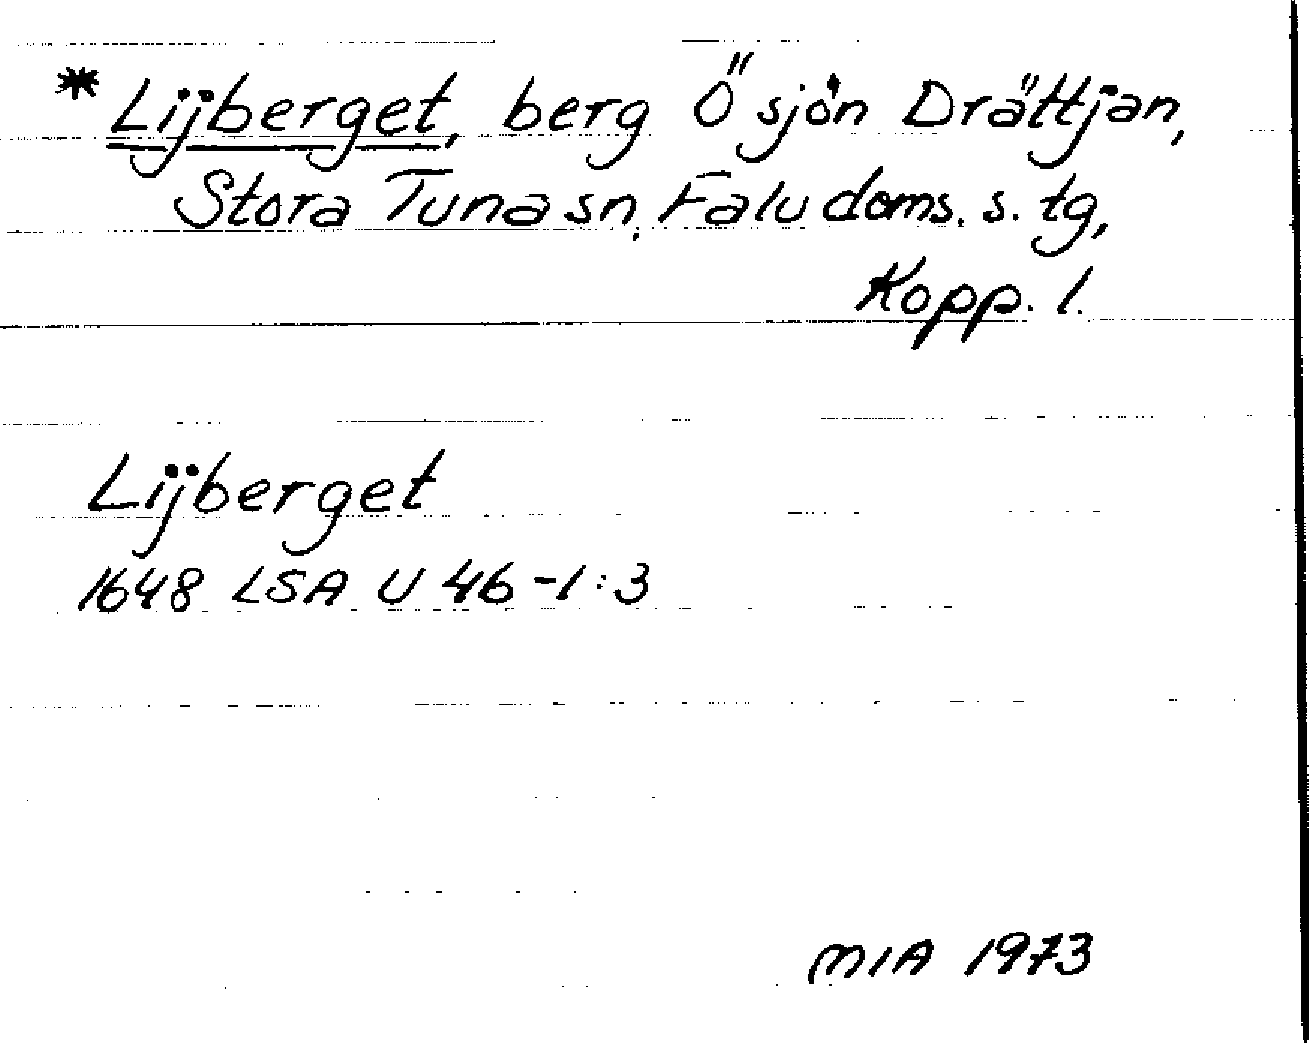 * Lijberget, berg Ö sjön Drättjan,
Stora Tuna sn, Falu doms. s. tg,
Kopp. l.
Lijberget
1648 LSA U 46-1:3
MIA 1973